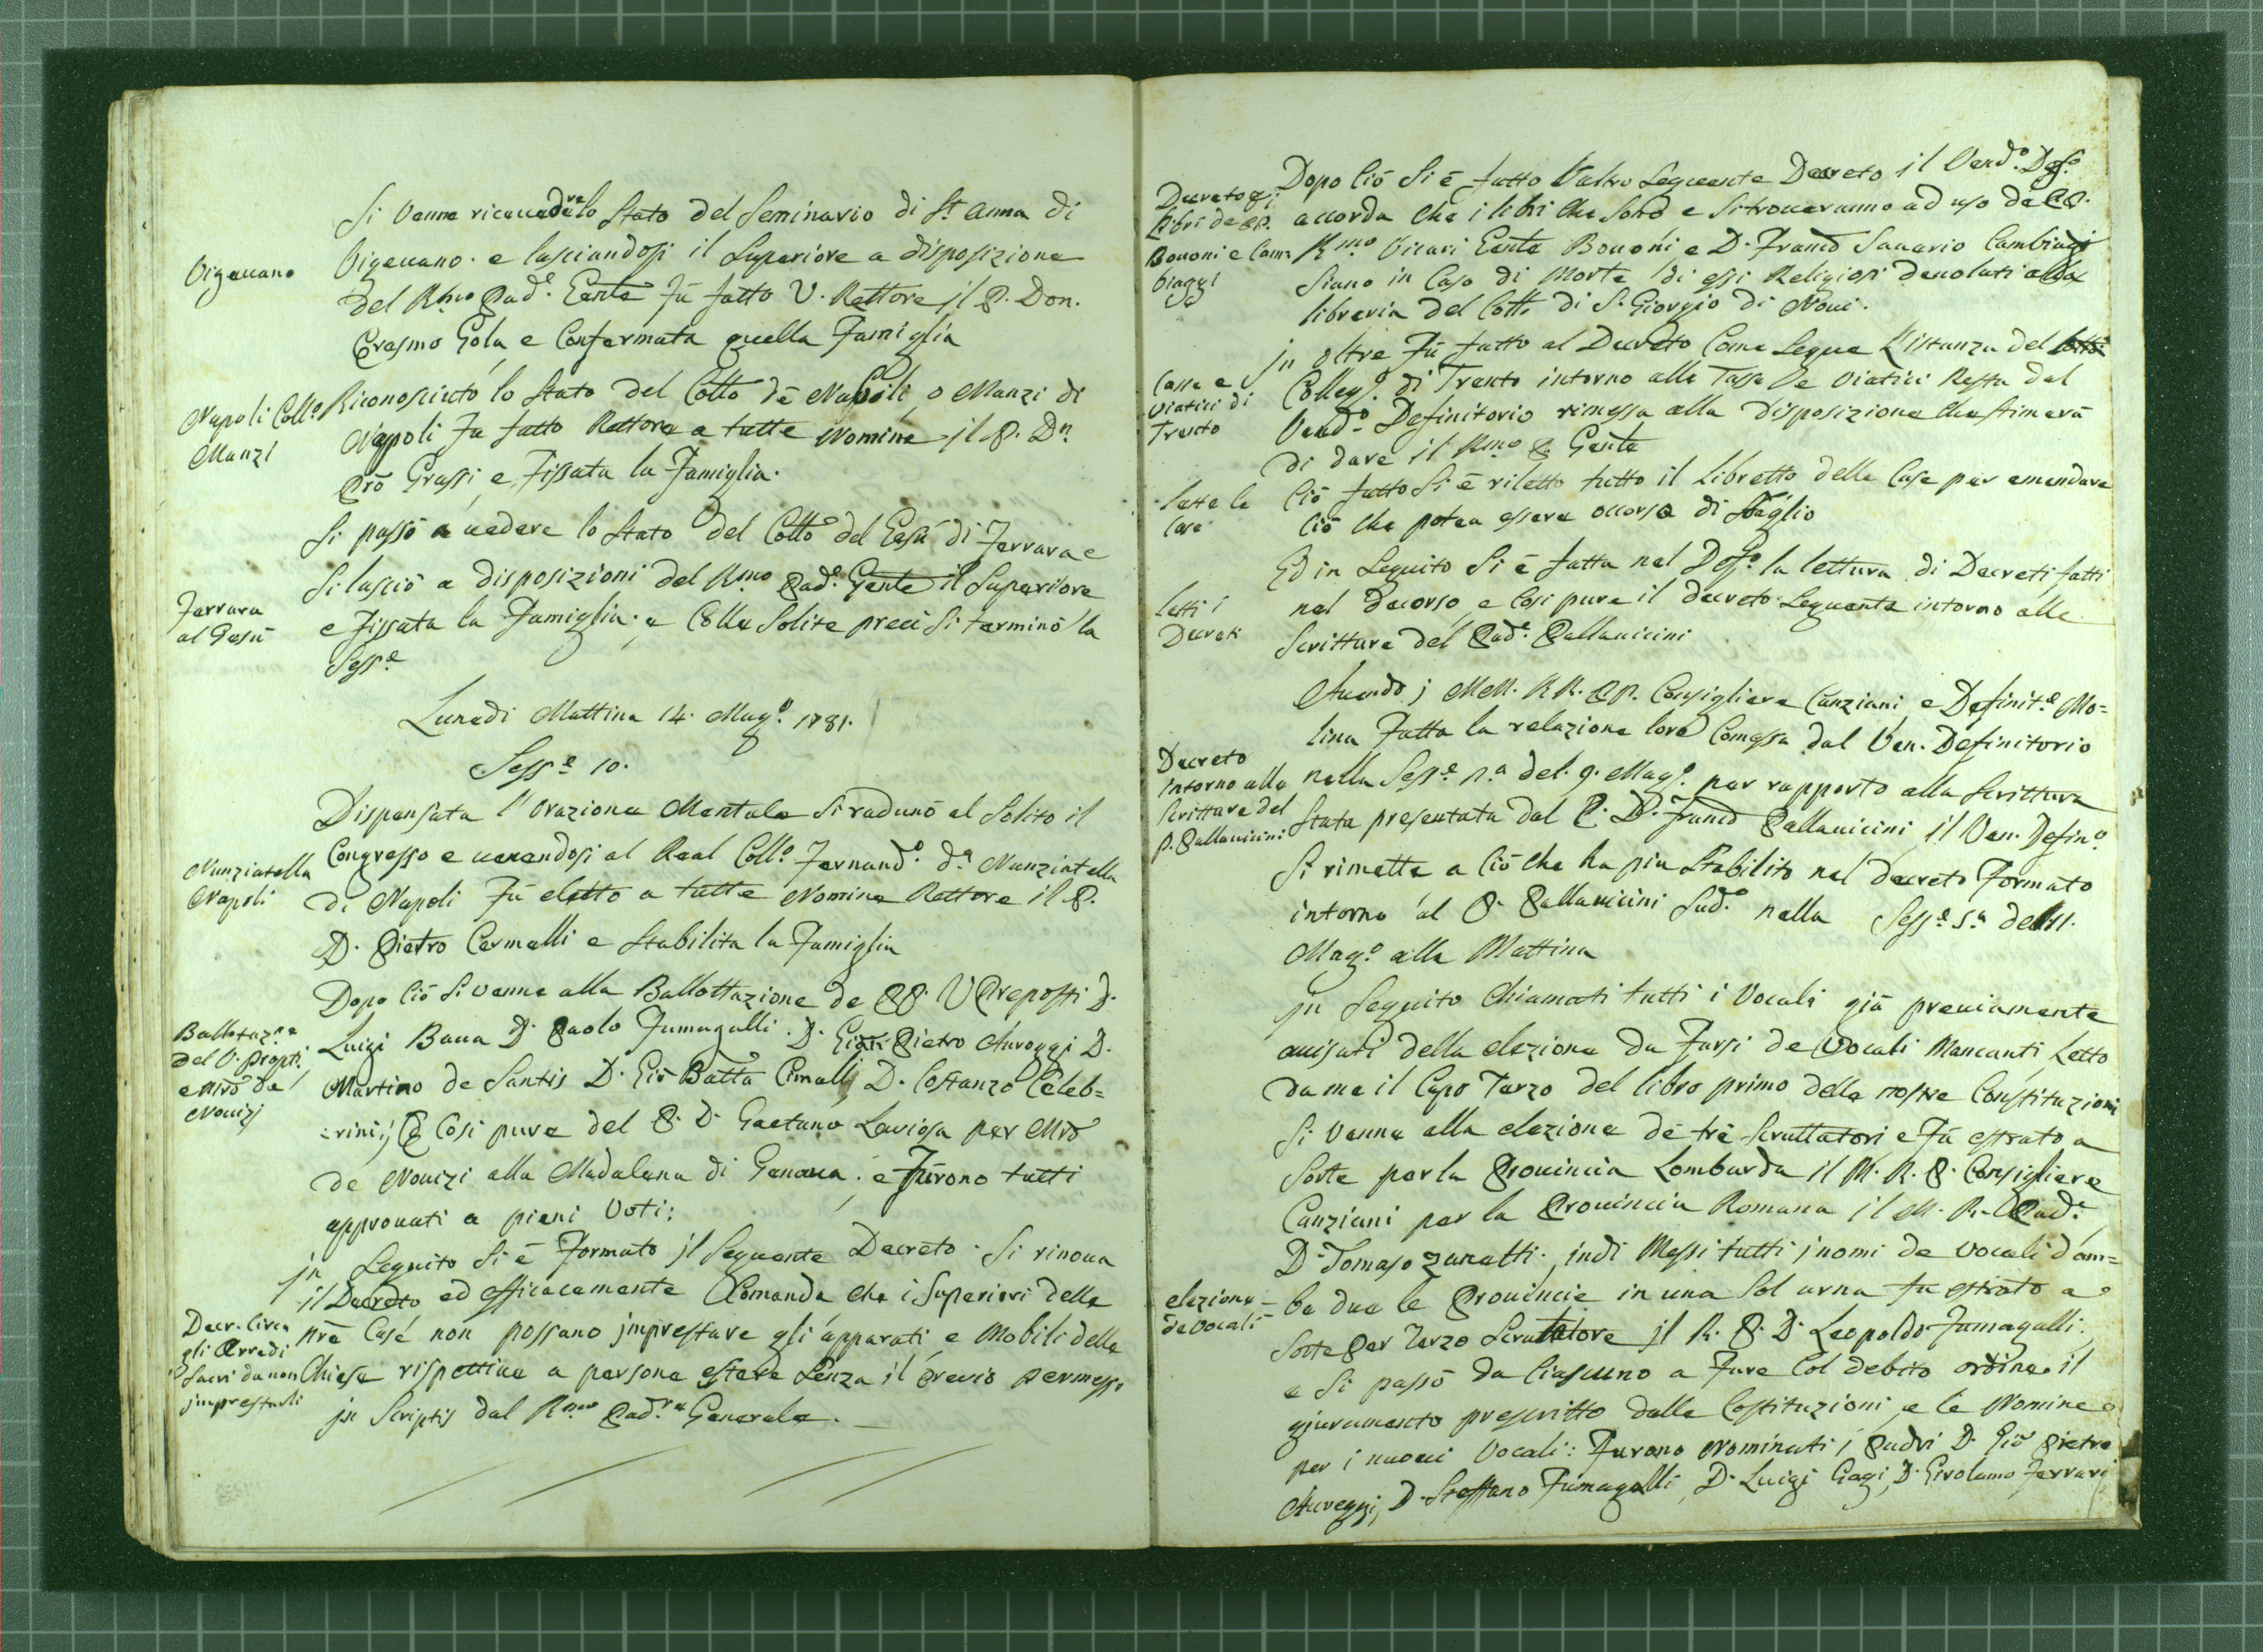 Si venne ricevedere lo Stato del Seminario di St. Anna di
Vigevano
Vigevano. e lasciandosi il Superiore a disposizione
del Rmo Pade. Gente fù fatto V. Rettore il P. Don.
Erasmo Gola e Confermata quella Famiglia
Napoli Collo
Manzi
Riconosciuto lo Stato del Collo dè Napoli, o Manzi di
Napoli fu fatto Rettore a tutte Nomine il P. Dn.
Prō Grassi, e Fissata la Famiglia.
Si passò a vedere lo Stato del Collo del Gesù di Ferrara e
Si lasciò a disposizioni del Rmo Pade. Gente il Superiore
Ferrara
al Gesù
e Fissata la Famiglia. e Colle Solite preci Si terminò la
Sesse
Lunedi Mattina 14. Mago. 1781.
Sesse 10.
Dispensata l'Orazione Mentale Si radunò al Solito il
Nunziatella
Napoli
Congresso e venendosi al Real Collo. Fernando. da Nunziatella
di Napoli Fù eletto a tutte Nomine Rettore il P.
D. Pietro Cermelli e Stabilita la Famiglia
Dopo Ciò Si venne alla Ballottazione de PP. V Preposti D.
Ballotazne
del V. Propti.
e Mrō de
Novizj
Luigi Bava D. Paolo Fumagalli. D. Gioā Pietro Aureggi D.
Martino de Santis D. Giō Batta Cimalli, D. Costanzo Celeb=
=rini, E Cosi pure del P. D. Gaetano Laviosa per Mrō
de Novizi alla Madalena di Genova. e Fùrono tutti
approvati a pieni Voti:
jn Seguito Si è Formato jl Seguente Decreto. Si rinova
il Decreto ed efficacemente Comanda che i Superiori delle
Decr. Circa
gli Arredi
Sacri da non
jmprestarli
nrē Case non possano jmprestare gli apparati, e Mobili delle
Chiese rispettive a persone estere Senza il previo permesso
jn Scriptis dal Rmo Padre Generale.
Decreto pi
Libri de PP.
Bononi e Cam=
biaggi
Dopo Ciò Si è fatto l'altro Seguente Decreto il Vendo. Defo.
accorda che i libri che Sono e Si troveranno ad uso de PP.
Rmo Vicari Gente Bononi e D. Franco Savario Cambiagi
Siano in Caso di Morte di essi Religiosi devoluti alla
libreria del Collo di S. Giorgio di Novi.
jn oltre Fù fatto al Decreto Come Segue L'istanza del
Tasse e
Viatici di
Trento
Collego. di Trento intorno alle Tasse De Viatici Resta dal
Vendo. Definitorio rimessa alla disposizione che stimerà
di dare il Rmo P. Gente
Lette le
Case
Ciò fatto Si è riletto tutto il Libretto delle Case per emendare
Ciò che potea essere occorso di Sbaglio
Ed in Seguito Si è fatta nel Defo. la lettura di Decreti fatti
Letti i
Decreti
nel decorso, e Cosi pure il decreto Seguente intorno alle
Scritture del Pade. Pallavicini
Avendo j MM. RR. PP. Consigliere Canziani, e Definite. Mo=
lina Fatta la relazione loro Comessa dal Ven. Definitorio
Decreto
intorno alle
Scritture del
P. Pallavicini
nella Sesse 1.a del. 9. Mago. per rapporto alla Scrittura
Stata presentata dal P. D. Franco Pallavicini il Ven. Defino.
Si rimette a Ciò che ha piu Stabilito nel decreto Formato
intorno al P. Pallavicini Sudo. nella Sesse 5.a dell 11.
Mago. alla Mattina
jn Seguito Chiamati tutti i Vocali già previamente
avisati della elezione da Farsi de Vocali Mancanti, Letto
da me il Capo Terzo del libro primo delle nostre Constituzioni
Si venne alla elezione dè trè Scruttatori e Fù estrato a
Sorte per la Provincia Lombarda il M. R. P. Consigliere
Canziani per la Provincia Romana il M. R. Pade.
D. Tomaso Zanatti. indi Messi tutti j nomi de Vocali d'am=
elezione
de Vocali
be due le Provincie in una Sol urna fu estrato a
Sorte per Terzo Scrutatore jl R. P. D. Leopoldo Fumagalli,
e Si passò da Ciascuno a Fare Col debito ordine il
giuramento prescritto dalle Costituzioni, e le Nomine
per i nuovi Vocali: Furono Nominati i Padri D. Giō Pietro
Aureggi, D. Steffano Fumagalli, D. Luigi Gagi, D. Girolamo Ferrari